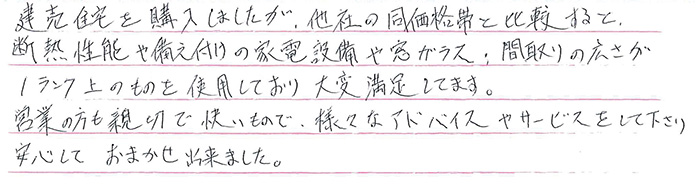 建売住宅を購入しましたが、他社の同価格帯と比較すると、
断熱性能や備え付けの家電設備や窓ガラス、間取りの広さが
1ランク上のものを使用しており大変満足してます。
営業の方も親切で快いもので、様々なアドバイスやサービスをして下さり
安心して おまかせ出来ました。